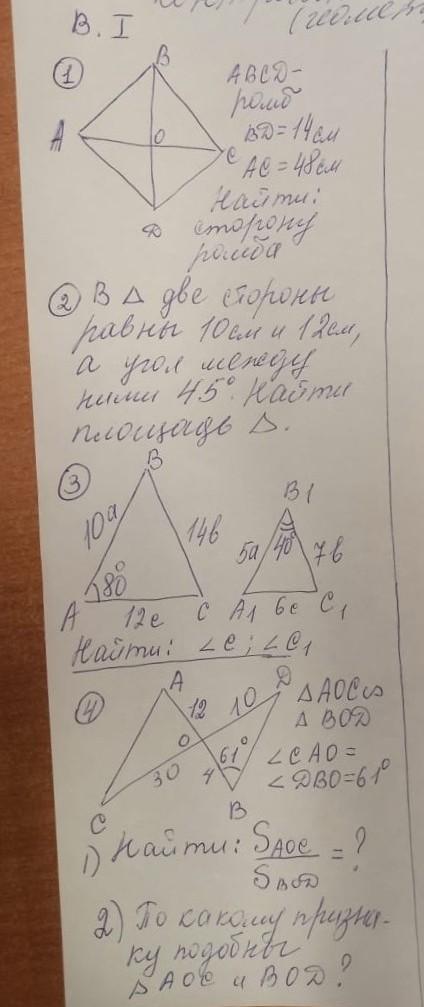 (геомет
В. I
1
B
A
O
C
D
ABCD-
ромб
BD=14см
AC=48см
Найти:
сторону
ромба
2 В △ две стороны
равны 10см и 12см,
а угол между
ними 45°. Найти
площадь △.
3
B
10a
14b
80°
A
12c
C
B1
5a
40°
7b
A1
6c
C1
Найти: ∠C; ∠C1
4
A
D
12
10
O
30
4
61°
C
B
△AOC∽
△BOD
∠CAO=
∠DBO=61°
1) Найти: SAOC/SBOD=?
2) По какому призна-
ку подобны
△AOC и BOD?